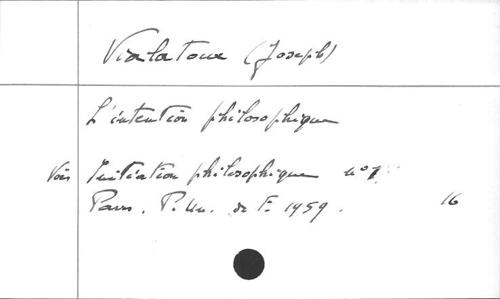 Vialatoux (Joseph)
L'intention philosophique
Voir Initiation philosophique n° 1
Paris. P. Un. de F. 1959. 16